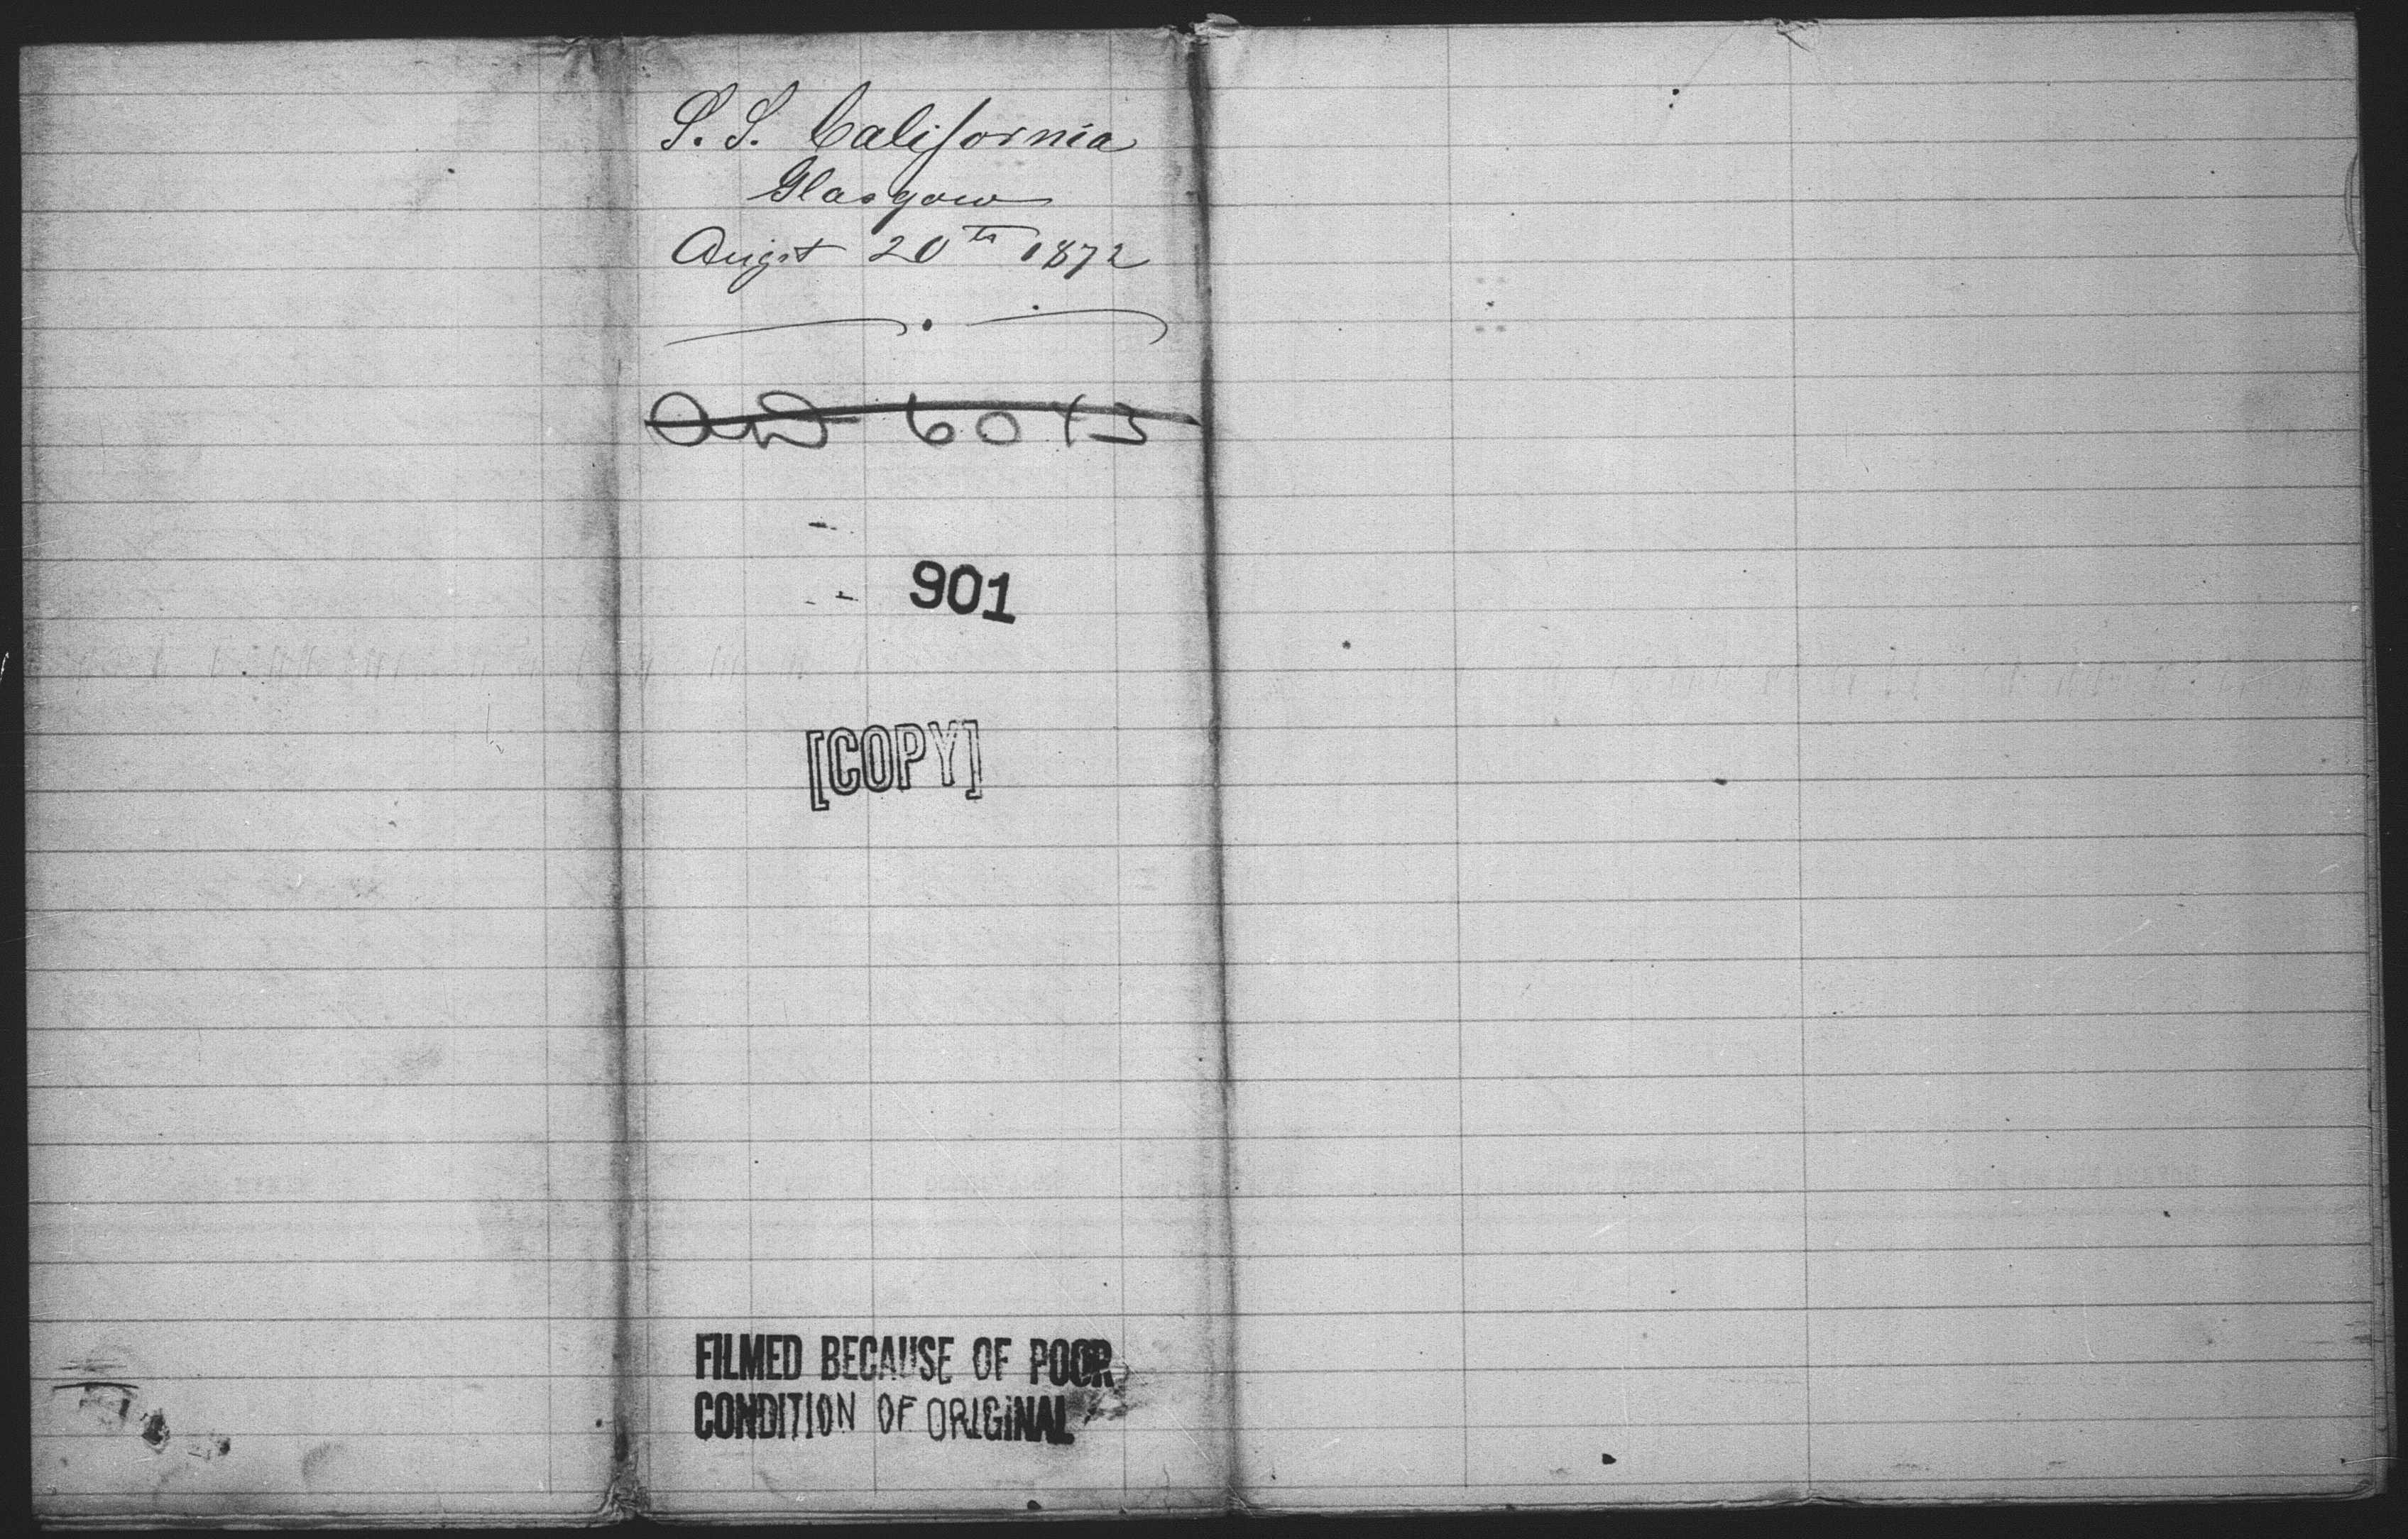 S. S. California
Glasgow
Augst 20th 1872
901
[COPY]
FILMED BECAUSE OF POOR
CONDITION OF ORIGINAL